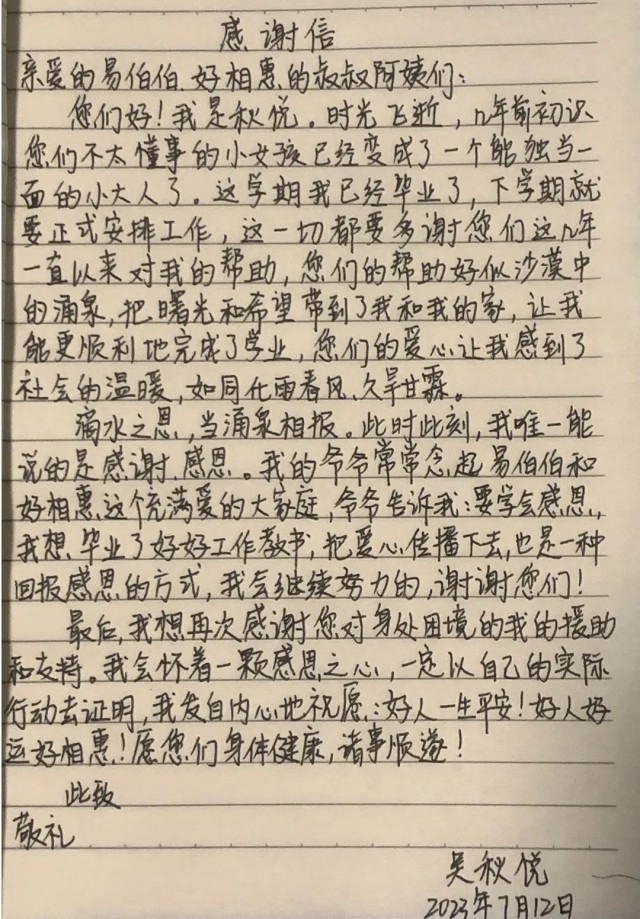 感谢信
亲爱的易伯伯、好相惠的叔叔阿姨们：
您们好！我是秋悦。时光飞逝，几年前初识
您们不太懂事的小女孩已经变成了一个能独当一
面的小大人了。这学期我已经毕业了，下学期就
要正式安排工作，这一切都要多谢您们这几年
一直以来对我的帮助，您们的帮助好似沙漠中
的涌泉，把曙光和希望带到了我和我的家，让我
能更顺利地完成了学业，您们的爱心让我感到了
社会的温暖，如同化雨春风、久旱甘霖。
滴水之恩，当涌泉相报。此时此刻，我唯一能
说的是感谢、感恩。我的爷爷常常念起易伯伯和
好相惠这个充满爱的大家庭，爷爷告诉我：要学会感恩，
我想毕业了好好工作教书，把爱心传播下去，也是一种
回报感恩的方式，我会继续努力的，谢谢您们！
最后，我想再次感谢您对身处困境的我的援助
和支持。我会怀着一颗感恩之心，一定以自己的实际
行动去证明，我发自内心地祝愿：好人一生平安！好人好
运好相惠！愿您们身体健康，诸事顺遂！
此致
敬礼
吴秋悦
2023年7月12日